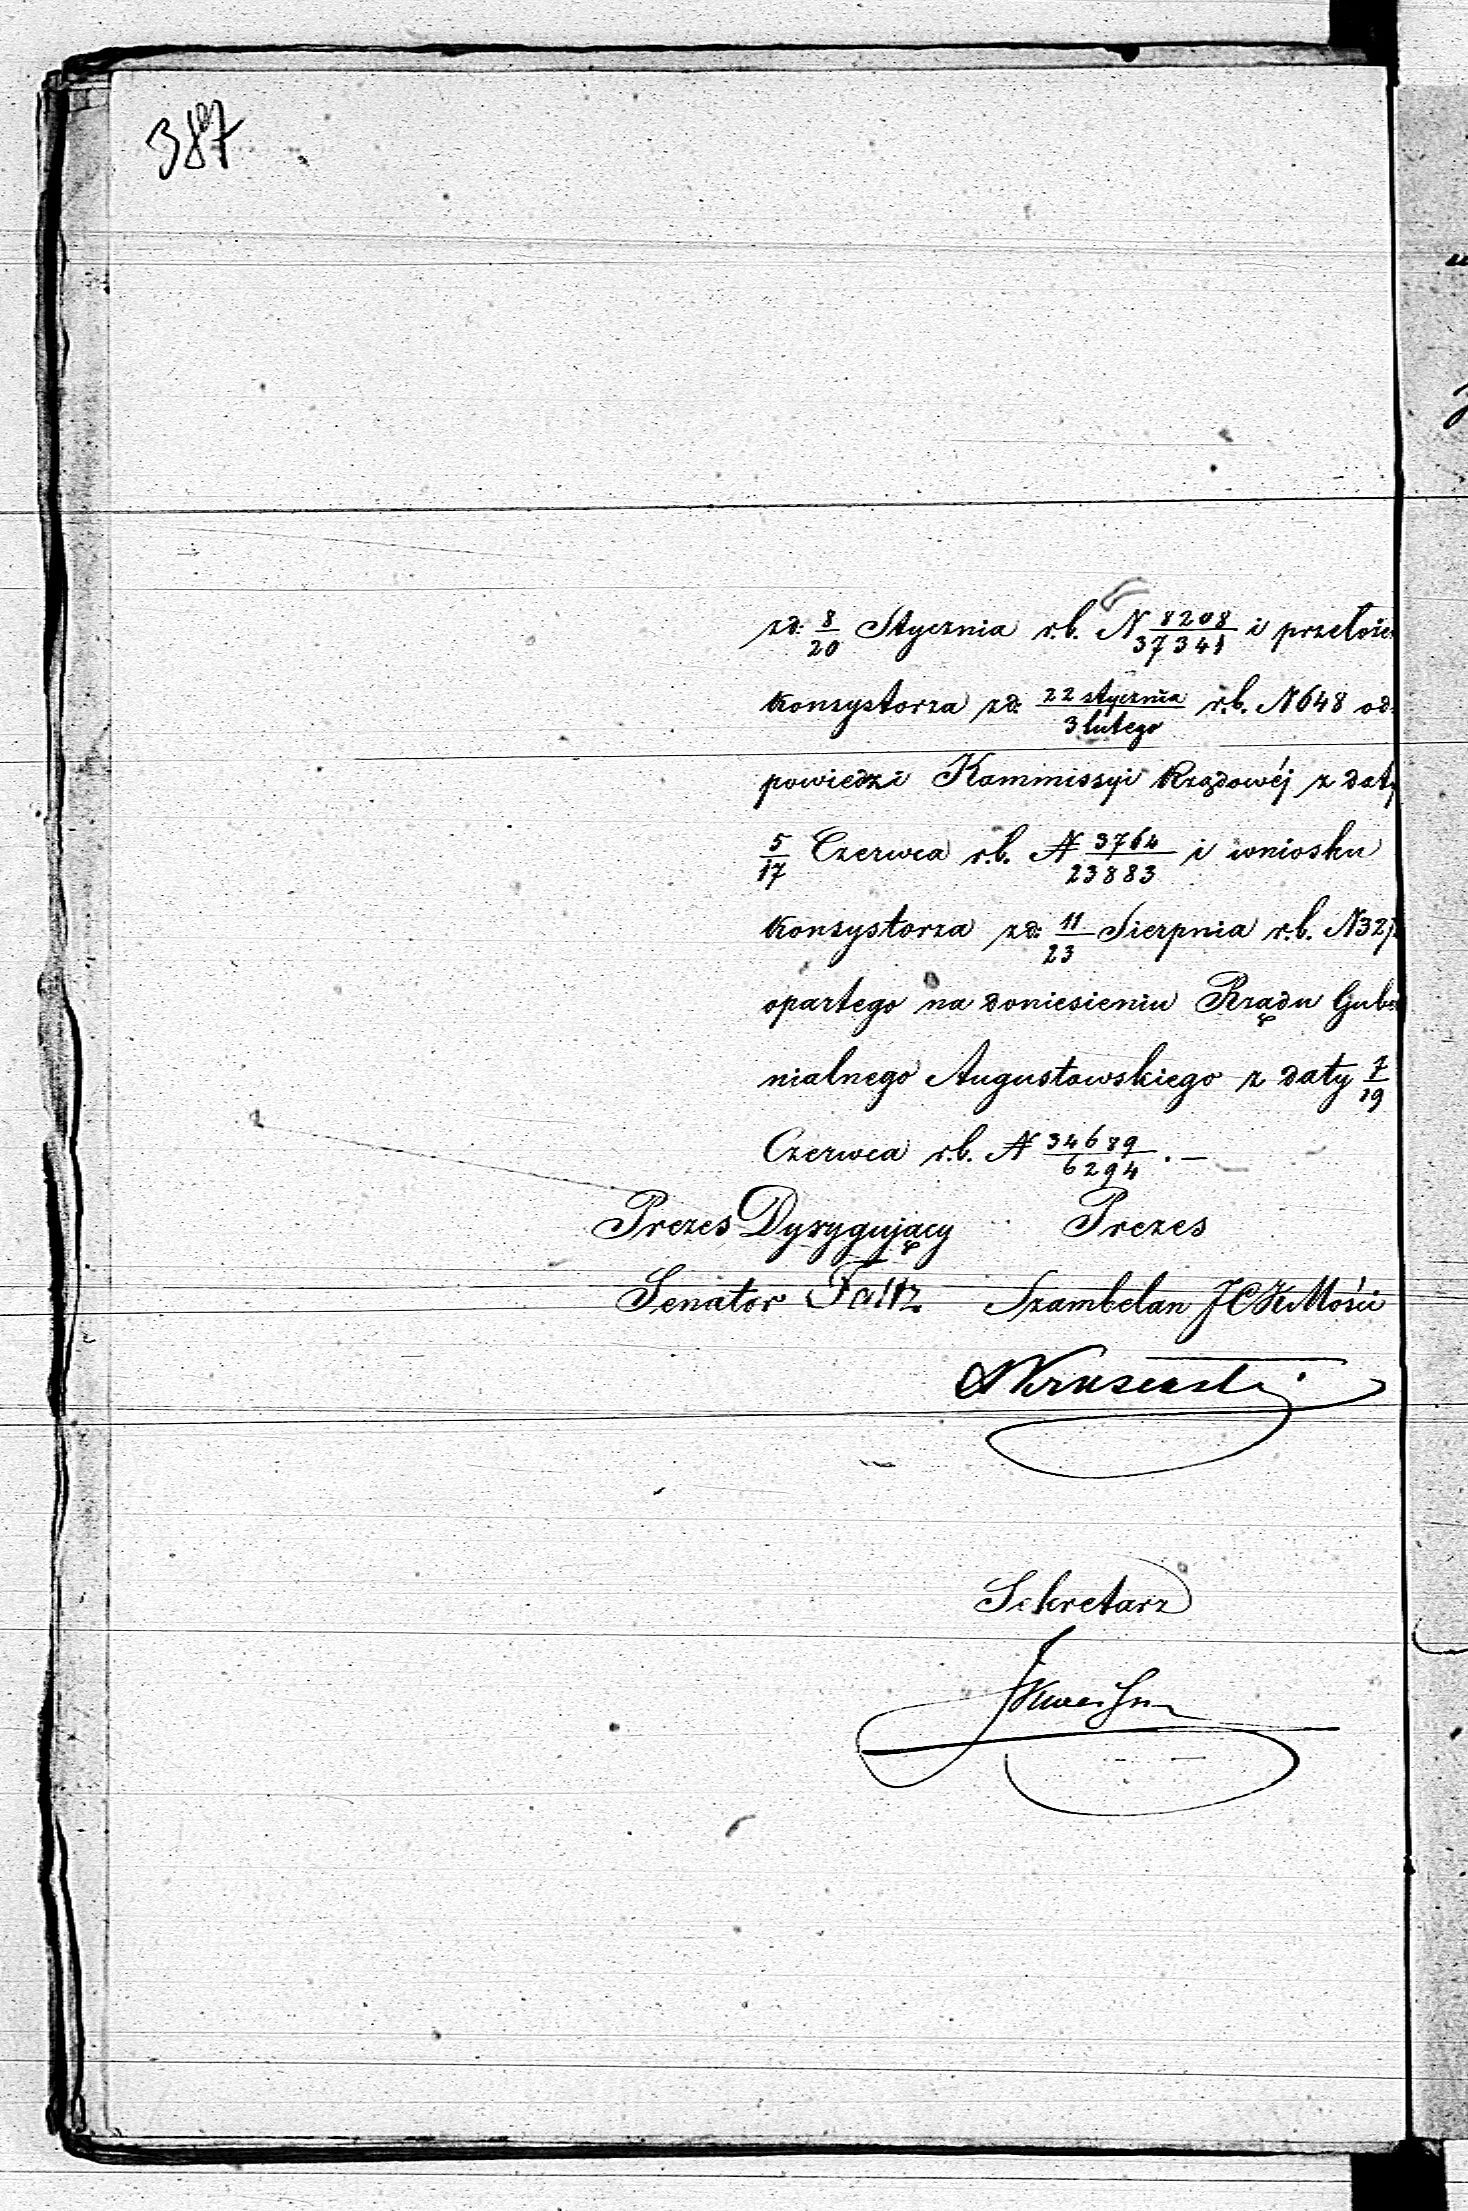 387
zd: 8/20 Stycznia r.b. N 8208/37341 i przełoże
konsystorza zd: 22 stycznia/3 lutego r.b. N 648 od-
powiedzi Kommissyi Rządowéj z daty
5/17 Czerwca r.b. N 3764/23883 i wniosku
konsystorza zd: 11/23 Sierpnia r.b. N 327
opartego na doniesieniu Rządu Gube
nialnego Augustowskiego z daty 7/19
Czerwca r.b. N 34689/6294 . —
Prezes Dyrygujący Prezes
Senator Faltz Szambelan JCKMości
Sekretarz